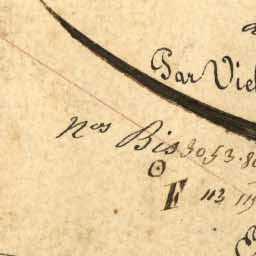 Par Viel
Nos Bis 30.53.8
F 113 115